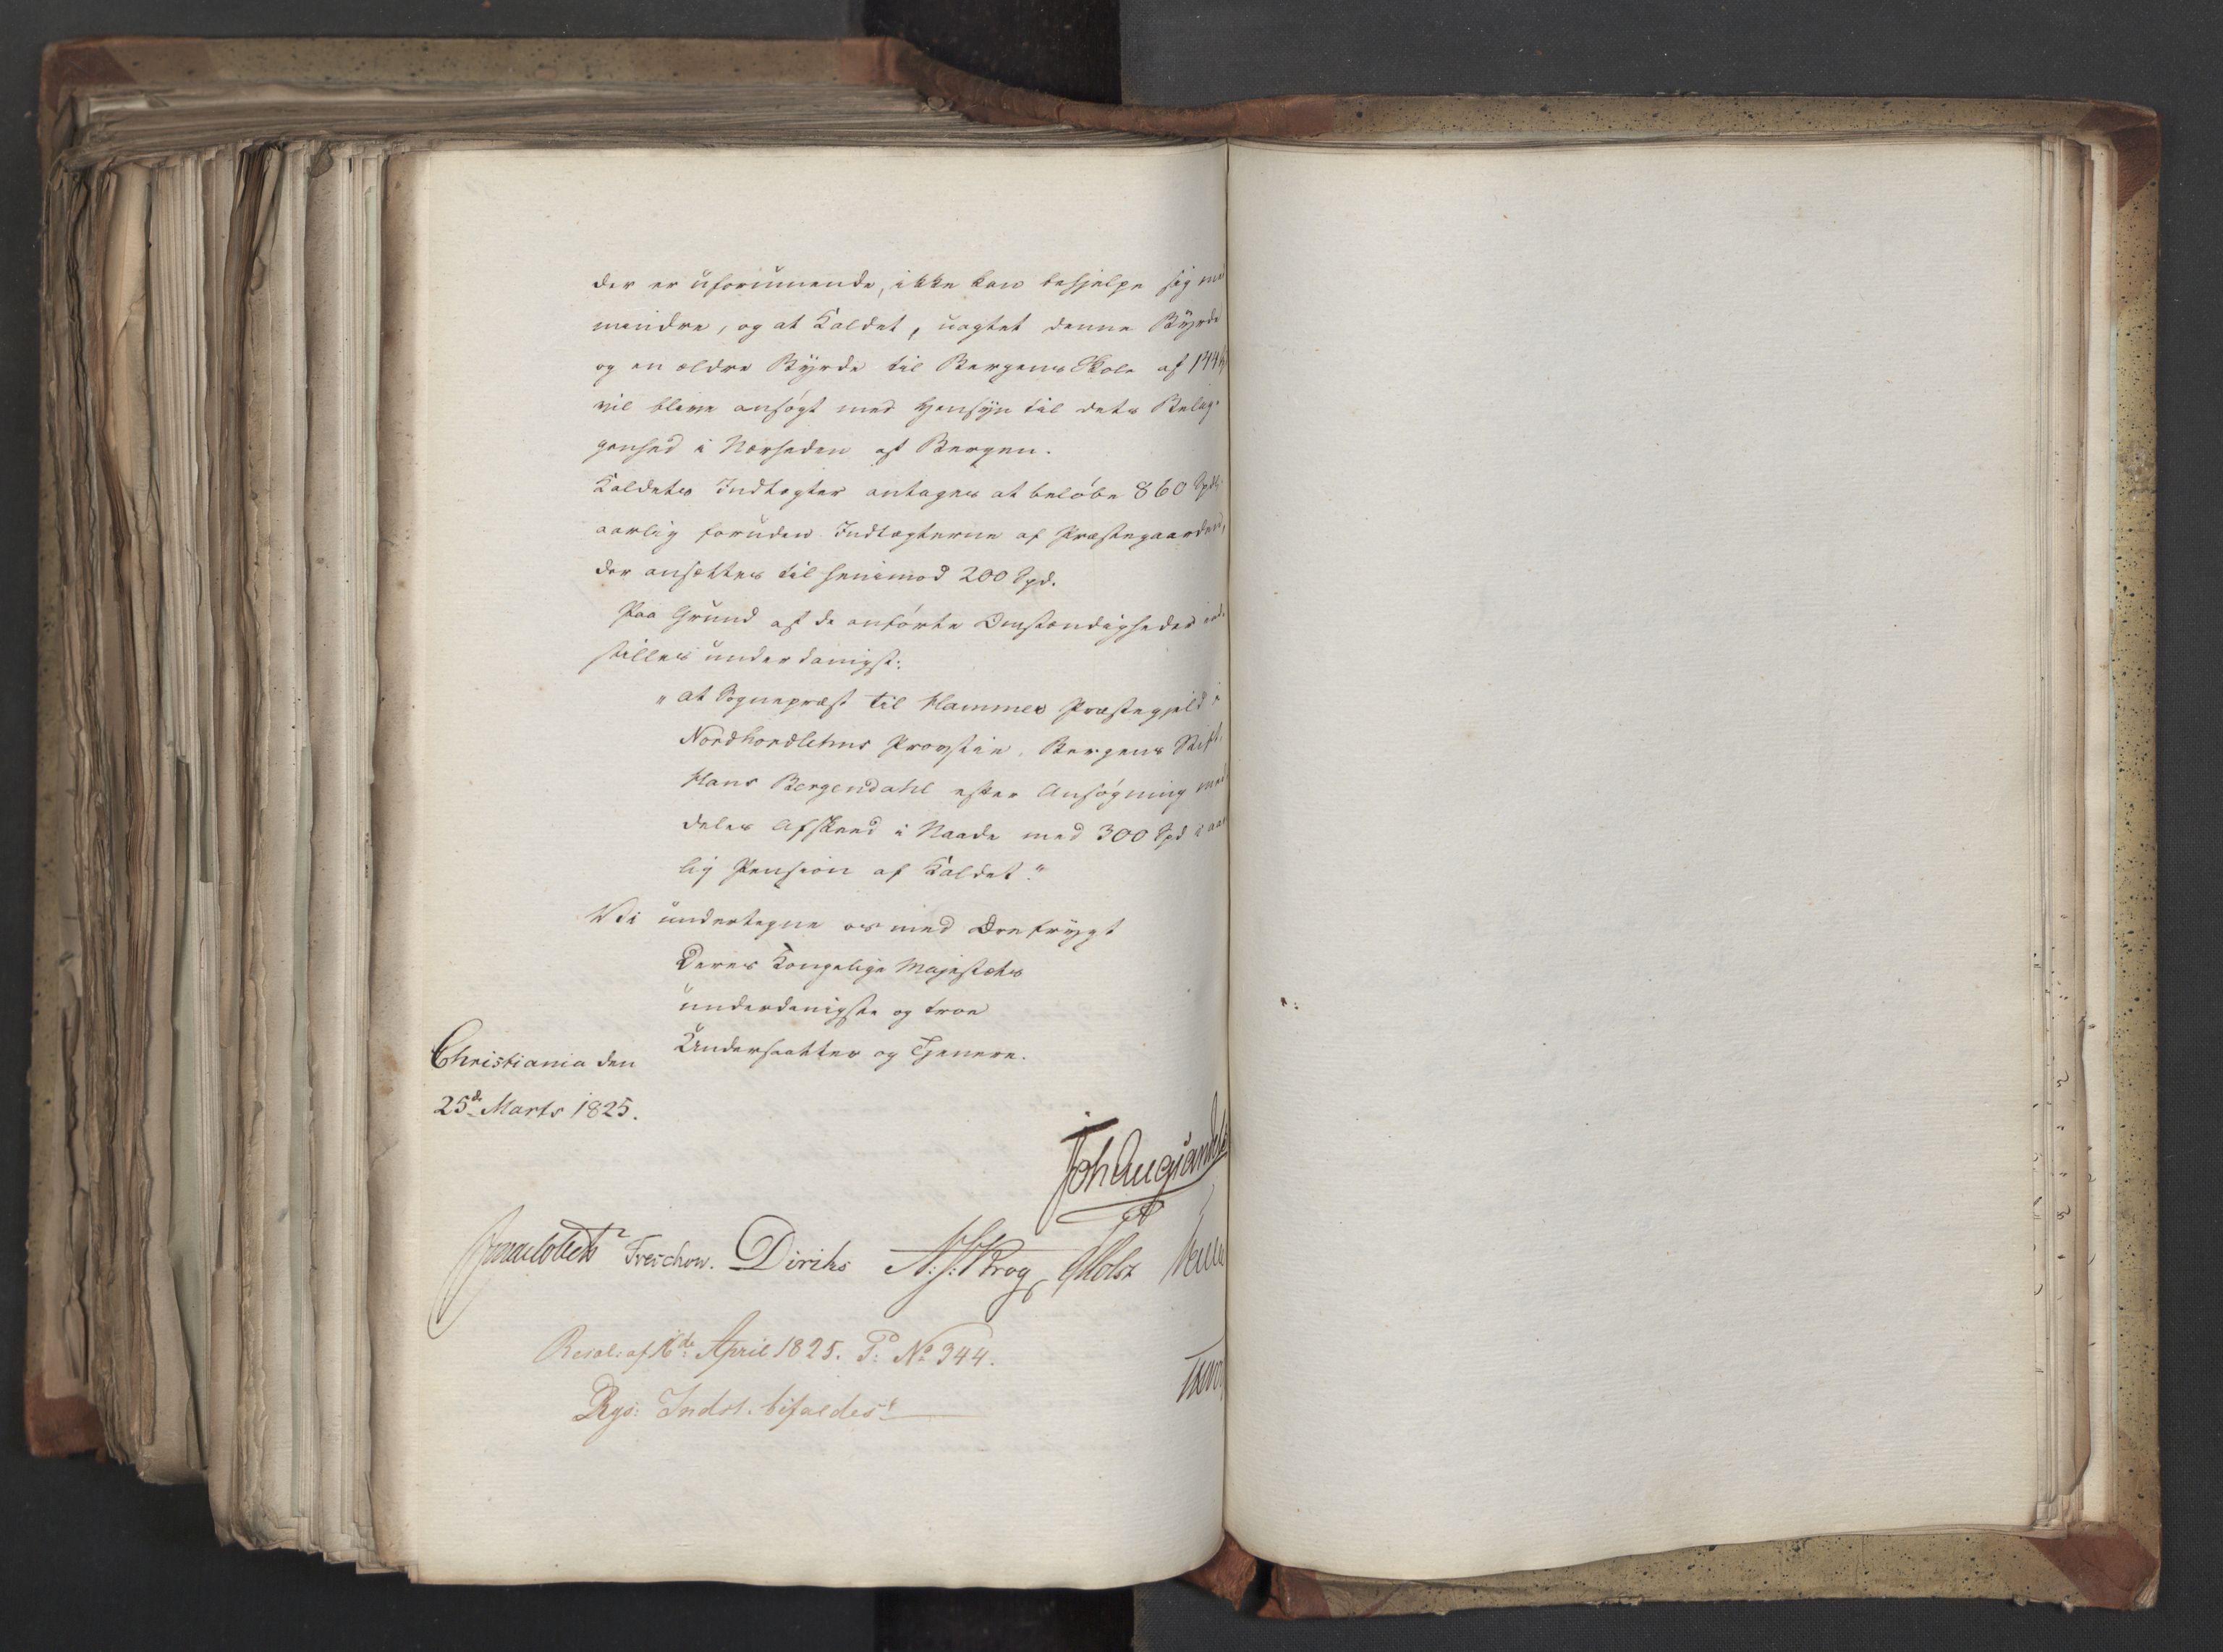 der er uformuende, ikke kan behjelpe sig med
mindre, og at Kaldet, uagtet denne Byrde
og en ældre Byrde til Bergens Skole af
vil blive ansøgt med Hensyn til dets Belig-
genhed i Nærheden af Bergen.
Kaldets Indtægter antages at beløbe 860 Spd
aarlig foruden Indtægterne af Præstegaarden,
der ansættes til henimod 200 Spd.
Paa Grund af de anførte Omstændigheder ind-
stilles underdanigst:
"at Sognepræst til Hammers Præstegjeld i
Nordhordlehns Provstie, Bergens Stift,
Hans Bergendahl efter Ansøgning med
deles Afsked i Naade med 300 Spd i aar
lig Pension af Kaldet."
Vi undertegne os med Ærefrygt
Deres Kongelige Majestæts
underdanigste og troe
Undersaatter og Tjenere.
Christiania den
25de Marts 1825.
Joh Aug Sandels
Collett Treschow. Diriks N: J: Krog Holst
Resol: af 16de April 1825. P: No 344.
Rgs: Indst. bifaldes.